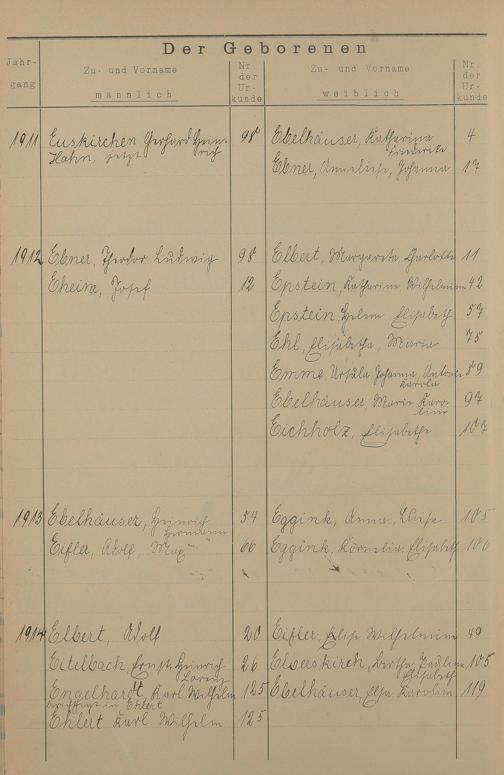 Der Geborenen
Jahrgang Zu- und Vorname männlich Nr. der Urkunde Zu- und Vorname weiblich Nr. der Urkunde
1911 Euskirchen Gerhard Heinrich 98 Ebelhäuser, Katharina Friederike 4
Hahn, jetzt Ebner, Anneliese, Johanna 17
1912 Ebner, Theodor Ludwig 98 Elbert, Margareta, Charlotte 11
Eheim, Josef 12 Epstein, Katharina, Wilhelmine 42
Epstein, Helene Elisabeth 57
Ehl, Elisabetha, Maria 75
Emme, Ursula Johanna, Antonie Karola 89
Ebelhäuser, Maria Karoline 97
Eichholz, Elisabetha 107
1913 Ebelhäuser, Heinrich Hermann 54 Eggink, Anna, Luise 105
Eifler, Adolf, Max 66 Eggink, Kornelia, Elisabeth 106
1914 Elbert, Adolf 20 Eifler, Elise Wilhelmine 49
Eitelbach Ernst Heinrich Lorenz 26 Elverskirch, Bertha Pauline Elisabeth 105
Engelhardt, Karl Wilhelm 125 Ebelhäuser, Elsa Karoline 119
berichtigt in Ehlert
Ehlert Karl Wilhelm 125